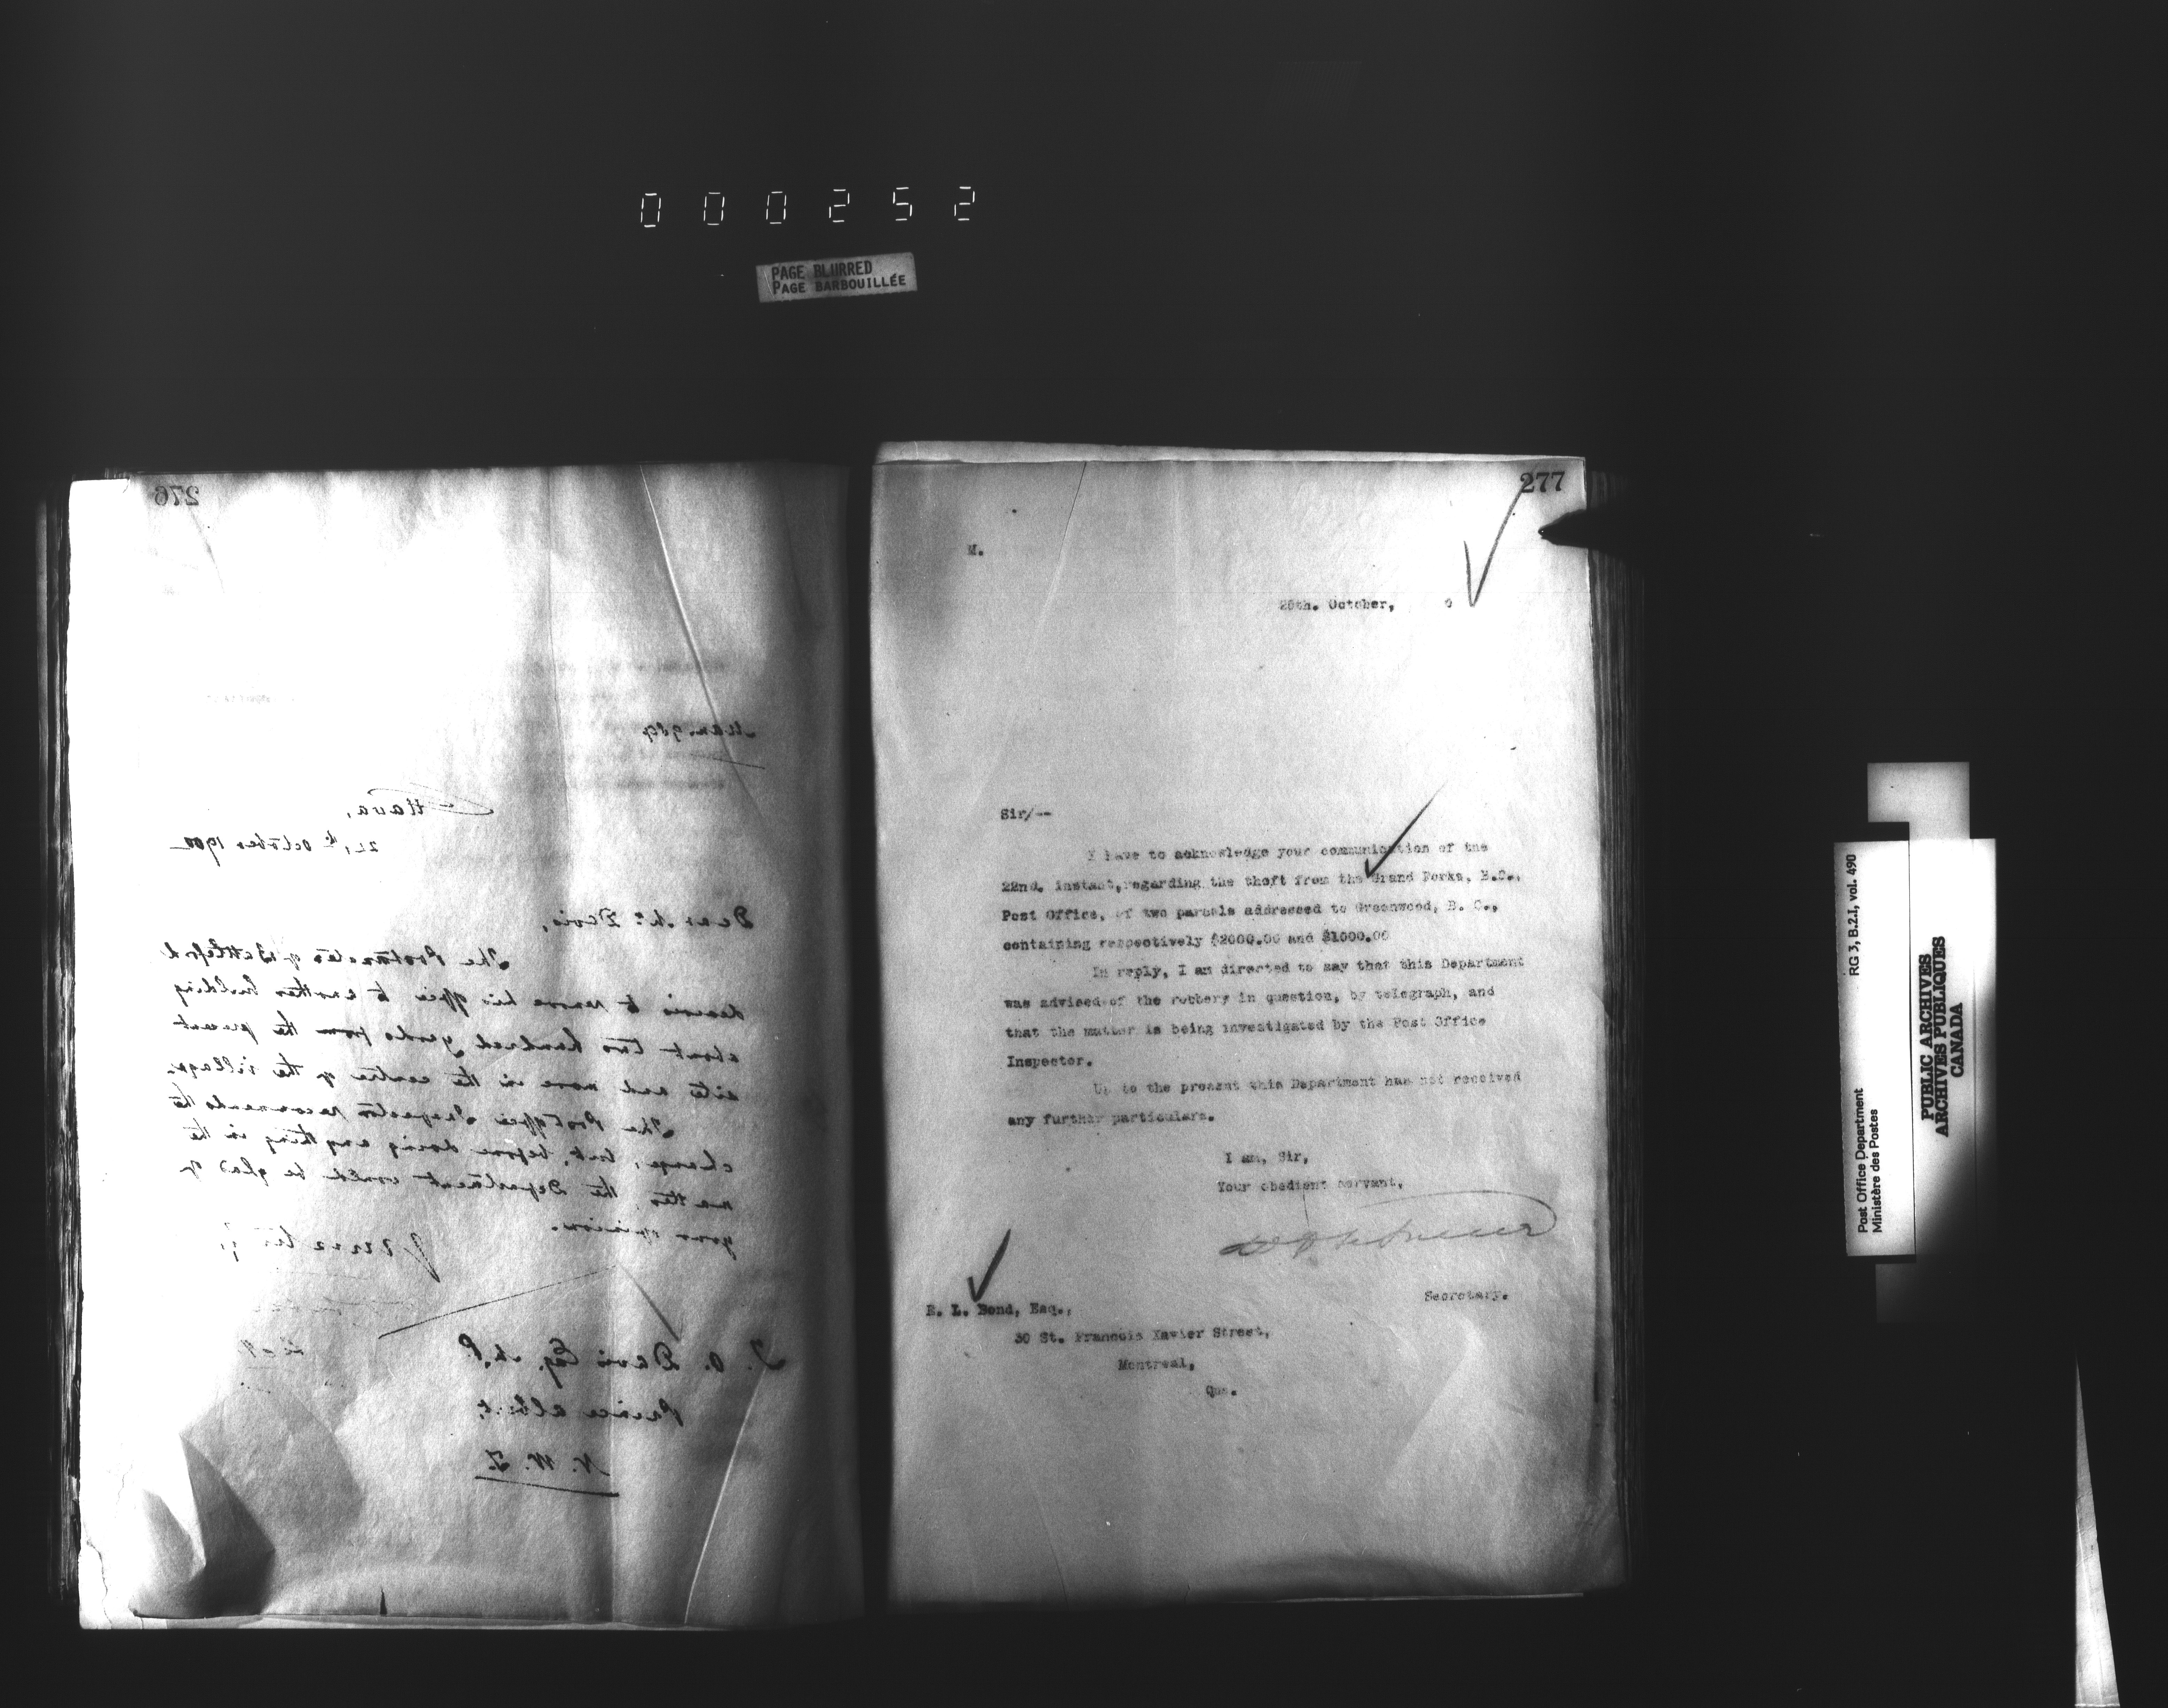 000252
PAGE BLURRED
PAGE BARBOUILLÉE
276
Man. 989
Ottawa,
October 1900
Dear Mr. Davis,
The Postmaster of Battleford
desires to remove his office to another building
about two hundred yards from the present
site and more in the centre of the village.
The Post Office Inspector recommends the
change, but, before doing anything in the
matter, the Department would be glad of
your opinion.
T. O. Davis Esq. M.P.
Prince Albert,
N. W. T.
277
M.
25th. October, 0
Sir/--
I have to acknowledge your communication of the
22nd. instant, regarding the theft from the Grand Forks, B.C.,
Post Office, of two parcels addressed to Greenwood, B. C.,
containing respectively $2000.00 and $1000.00
In reply, I am directed to say that this Department
was advised of the robbery in question, by telegraph, and
that the matter is being investigated by the Post Office
Inspector.
Up to the present this Department has not received
any further particulars.
I am, Sir,
Your obedient servant,
Secretary.
E. L. Bond, Esq.,
30 St. Francois Xavier Street,
Montreal,
Que.
RG 3, B.2.I, vol. 490
Post Office Department
Ministère des Postes
PUBLIC ARCHIVES
ARCHIVES PUBLIQUES
CANADA